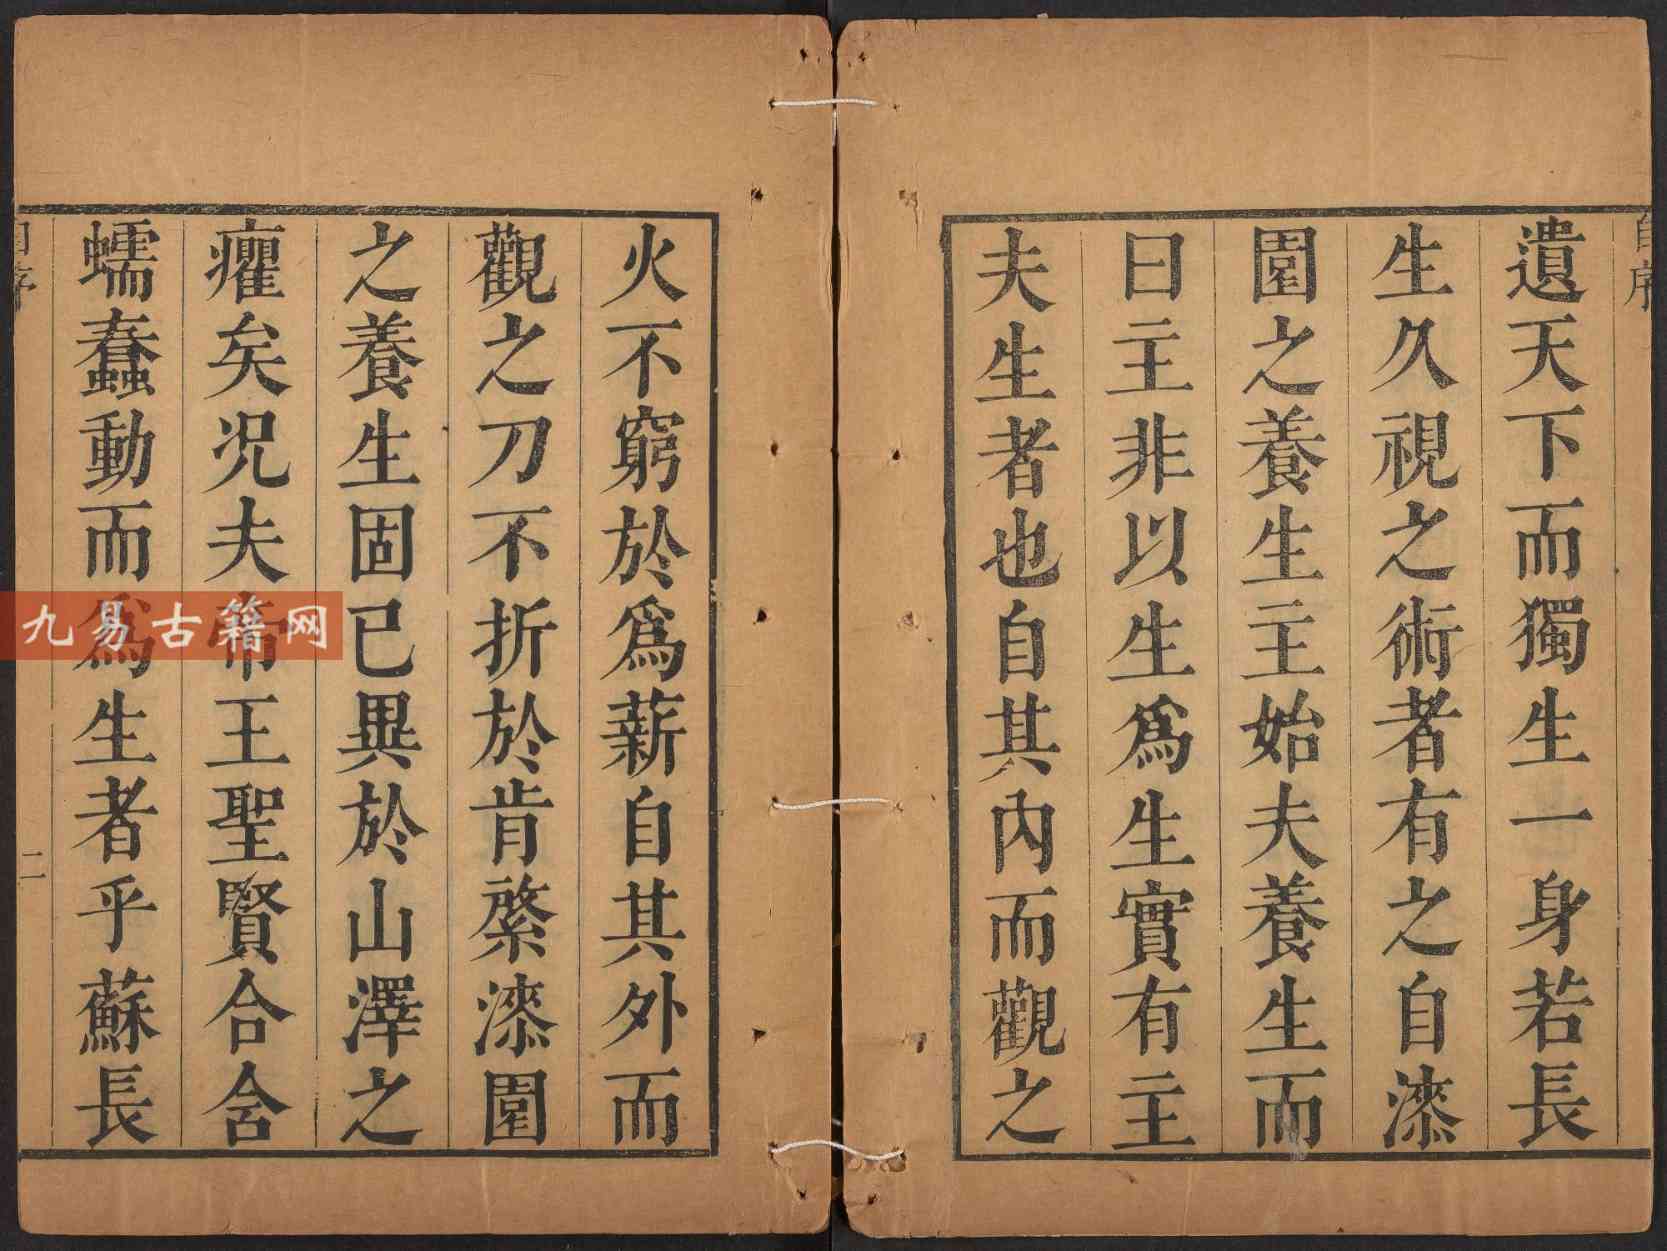 自序
遺天下而獨生一身若長
生久視之術者有之自漆
園之養生主始夫養生而
曰主非以生爲生實有主
夫生者也自其內而觀之
火不窮於爲薪自其外而
觀之刀不折於肯綮漆園
之養生固已異於山澤之
癯矣况夫帝王聖賢合含
蠕蠢動而爲生者乎蘇長
自序
二
九易古籍网